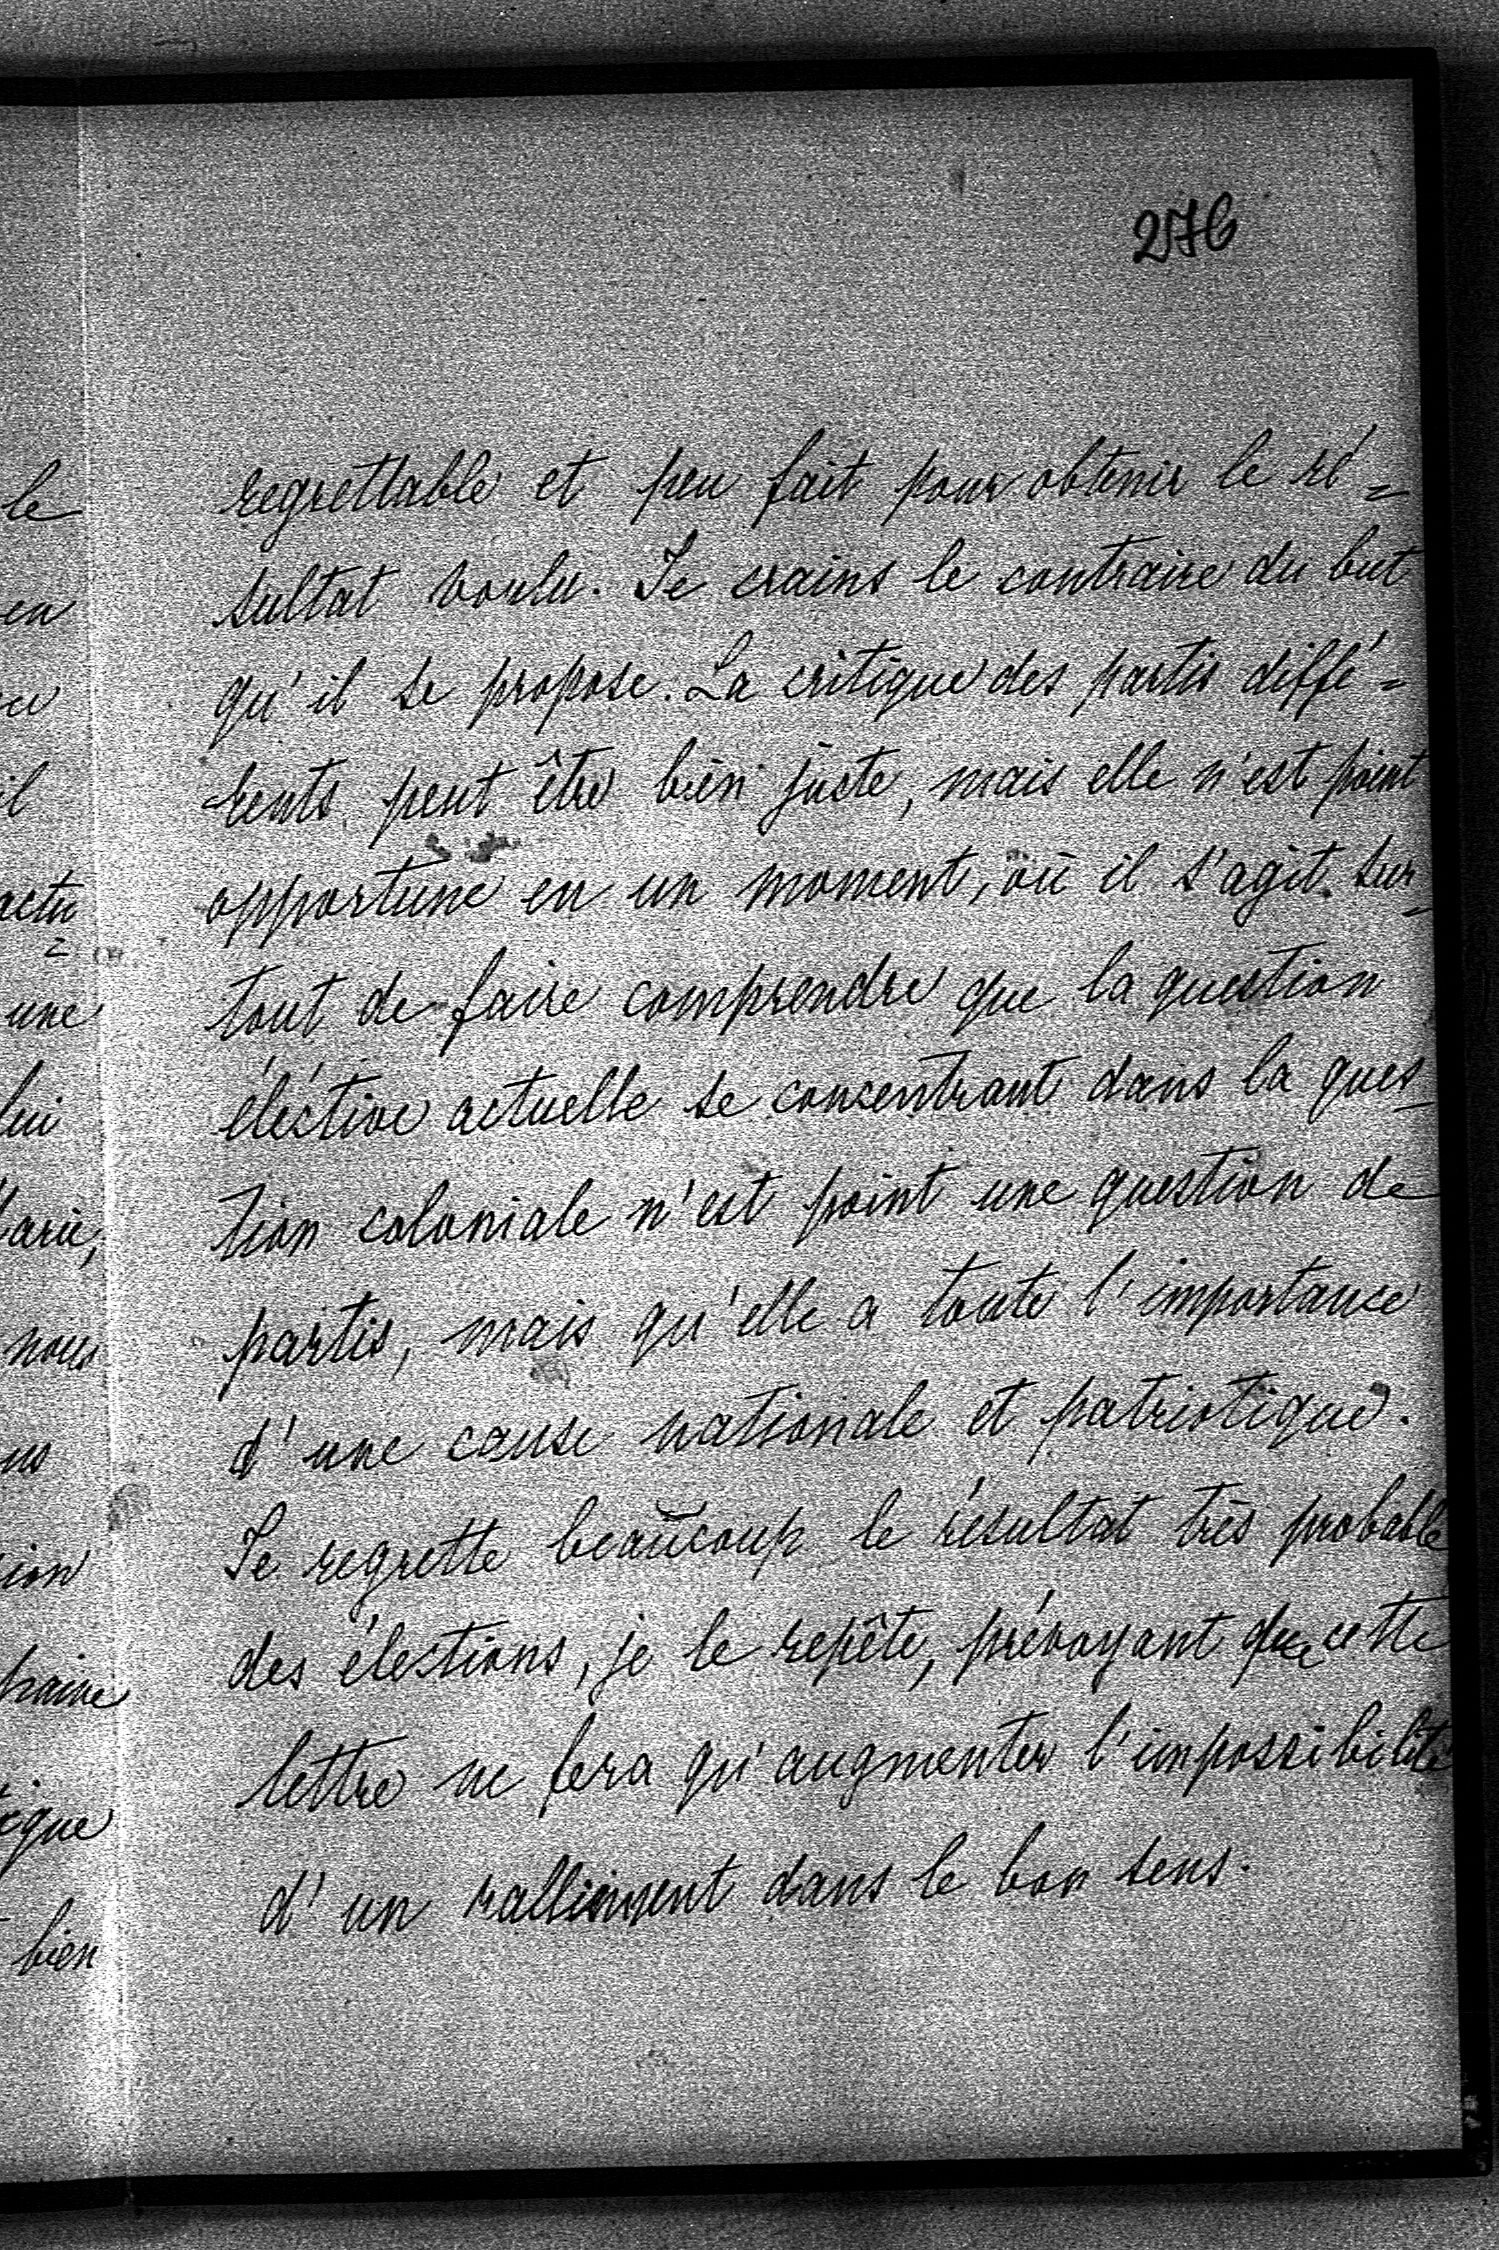 276
regrettable et peu fait pour obtenir le ré=
sultat voulu. Je crains le contraire du but
qu'il se propose. La critique des partis diffé=
rents peut être bien juste, mais elle n'est point
opportune en un moment, où il s'agit sur=
tout de faire comprendre que la question
éléctive actuelle se concentrant dans la ques=
tion coloniale n'est point une question de
partis, mais qu'elle a toute l'importance
d'une cause nationale et patriotique.
Je regrette beaucoup le résultat très probable
des élections, je le repête, prévoyant que cette
lettre ne fera qu'augmenter l'impossibilité
d'un ralliement dans le bon sens.
le
en
il
actu=
une
lui
nous
ion
ique
bien